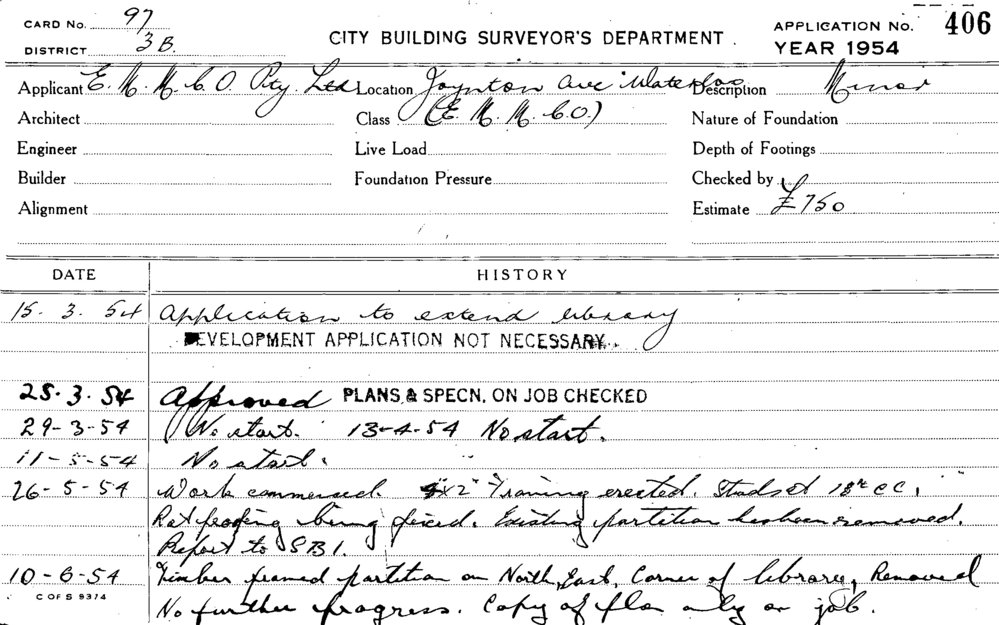 CARD No. 97
DISTRICT 3B.
CITY BUILDING SURVEYOR'S DEPARTMENT.
APPLICATION No. 406
YEAR 1954
Applicant E. M. M. C O Pty. Ltd Location Joynton Ave Waterloo Description Minor
Architect Class (E. M. M. C O.) Nature of Foundation
Engineer Live Load Depth of Footings
Builder Foundation Pressure Checked by
Alignment Estimate £750
DATE HISTORY
15. 3. 54 Application to extend library
DEVELOPMENT APPLICATION NOT NECESSARY.
25. 3. 54 Approved PLANS & SPECN. ON JOB CHECKED
29-3-54 No start. 13-4-54 No start.
11-5-54 No start.
26-5-54 Work commenced. 4"x2" Framing erected. Studs at 18" CC.
Ratproofing being fixed. Existing partition has been removed.
Report to SBI.
10-6-54 Timber framed partition on North, East, Corner of library, Removed
C OF S 9374
No further progress. Copy of plan only on job.